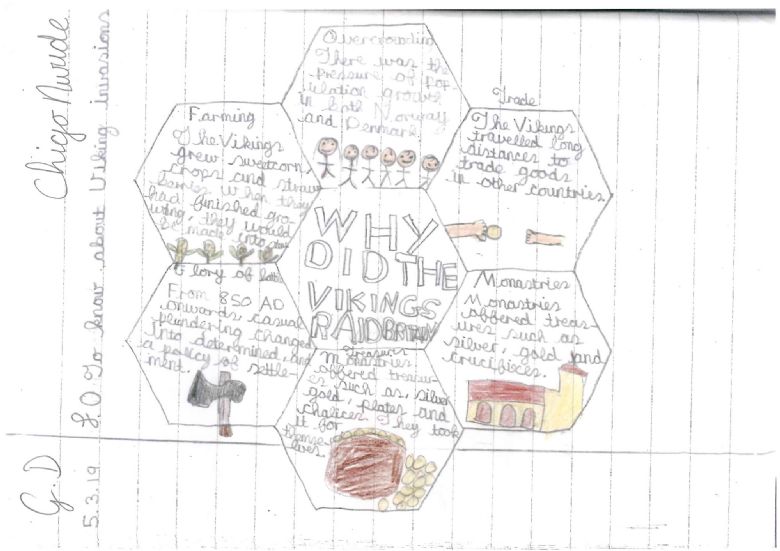 Chigo Nwude
G.D
5.3.19
L.O To know about Viking invasions
Overcrowding
There was the
pressure of pop-
ulation growth
in both Norway
and Denmark.
Farming
The Vikings
grew sweetcorn,
crops and straw
berries. When they
had finished gro-
wing, they would
be made into
Trade
The Vikings
travelled long
distances to
trade goods
in other countries
WHY
DID THE
VIKINGS
RAID BRITAIN
Glory of
From 850 AD
onwords, casual
plundering changed
into determined, and
a policy of settle-
ment.
Monastries
Monastries
offered treas-
ures such as
silver, gold and
crucifieces.
Treasures
monastries
offered treasur-
es such as, silver
gold, plates and
chalices. They took
it for
themse-
lves.